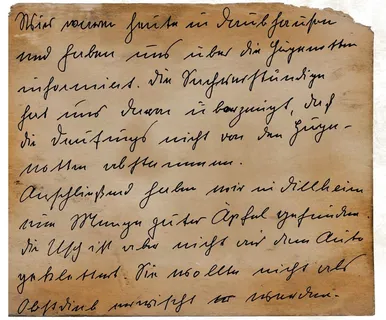 Wir waren heute in Daubhausen
und haben uns über die Hugenotten
informiert. Die Sachverständige
hat uns davon überzeugt, daß
die      nicht von den Huge-
notten abstammen.
Anschließend haben wir in Dillheim
eine Menge guter Äpfel gefunden.
Die Usch ist aber nicht auf dem Auto
geklettert. Sie wollte nicht als
Obstdieb erwischt werden.